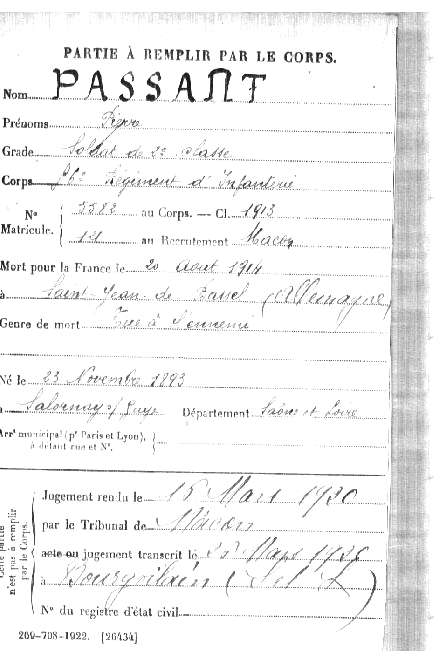 PARTIE À REMPLIR PAR LE CORPS.
Nom PASSANT
Prénoms
Grade Soldat de 2e classe
Corps Régiment d'Infanterie
Nº 5582 au Corps. — Cl. 1913
Matricule. au Recrutement Macon
Mort pour la France le 20 Aout 1914
à Saint Jean de Bassel (Allemagne)
Genre de mort Tué à l'ennemi
Né le 23 Novembre 1893
à Salornay s/ Guye Département Saône et Loire
Arrt municipal (pr Paris et Lyon), à défaut rue et Nº.
Cette partie n'est pas à remplir par le Corps.
Jugement rendu le 16 Mars 1920
par le Tribunal de Macon
acte ou jugement transcrit le Mars 1920
à Bourgvilain (S et L)
Nº du registre d'état civil
269-708-1922. [26434]